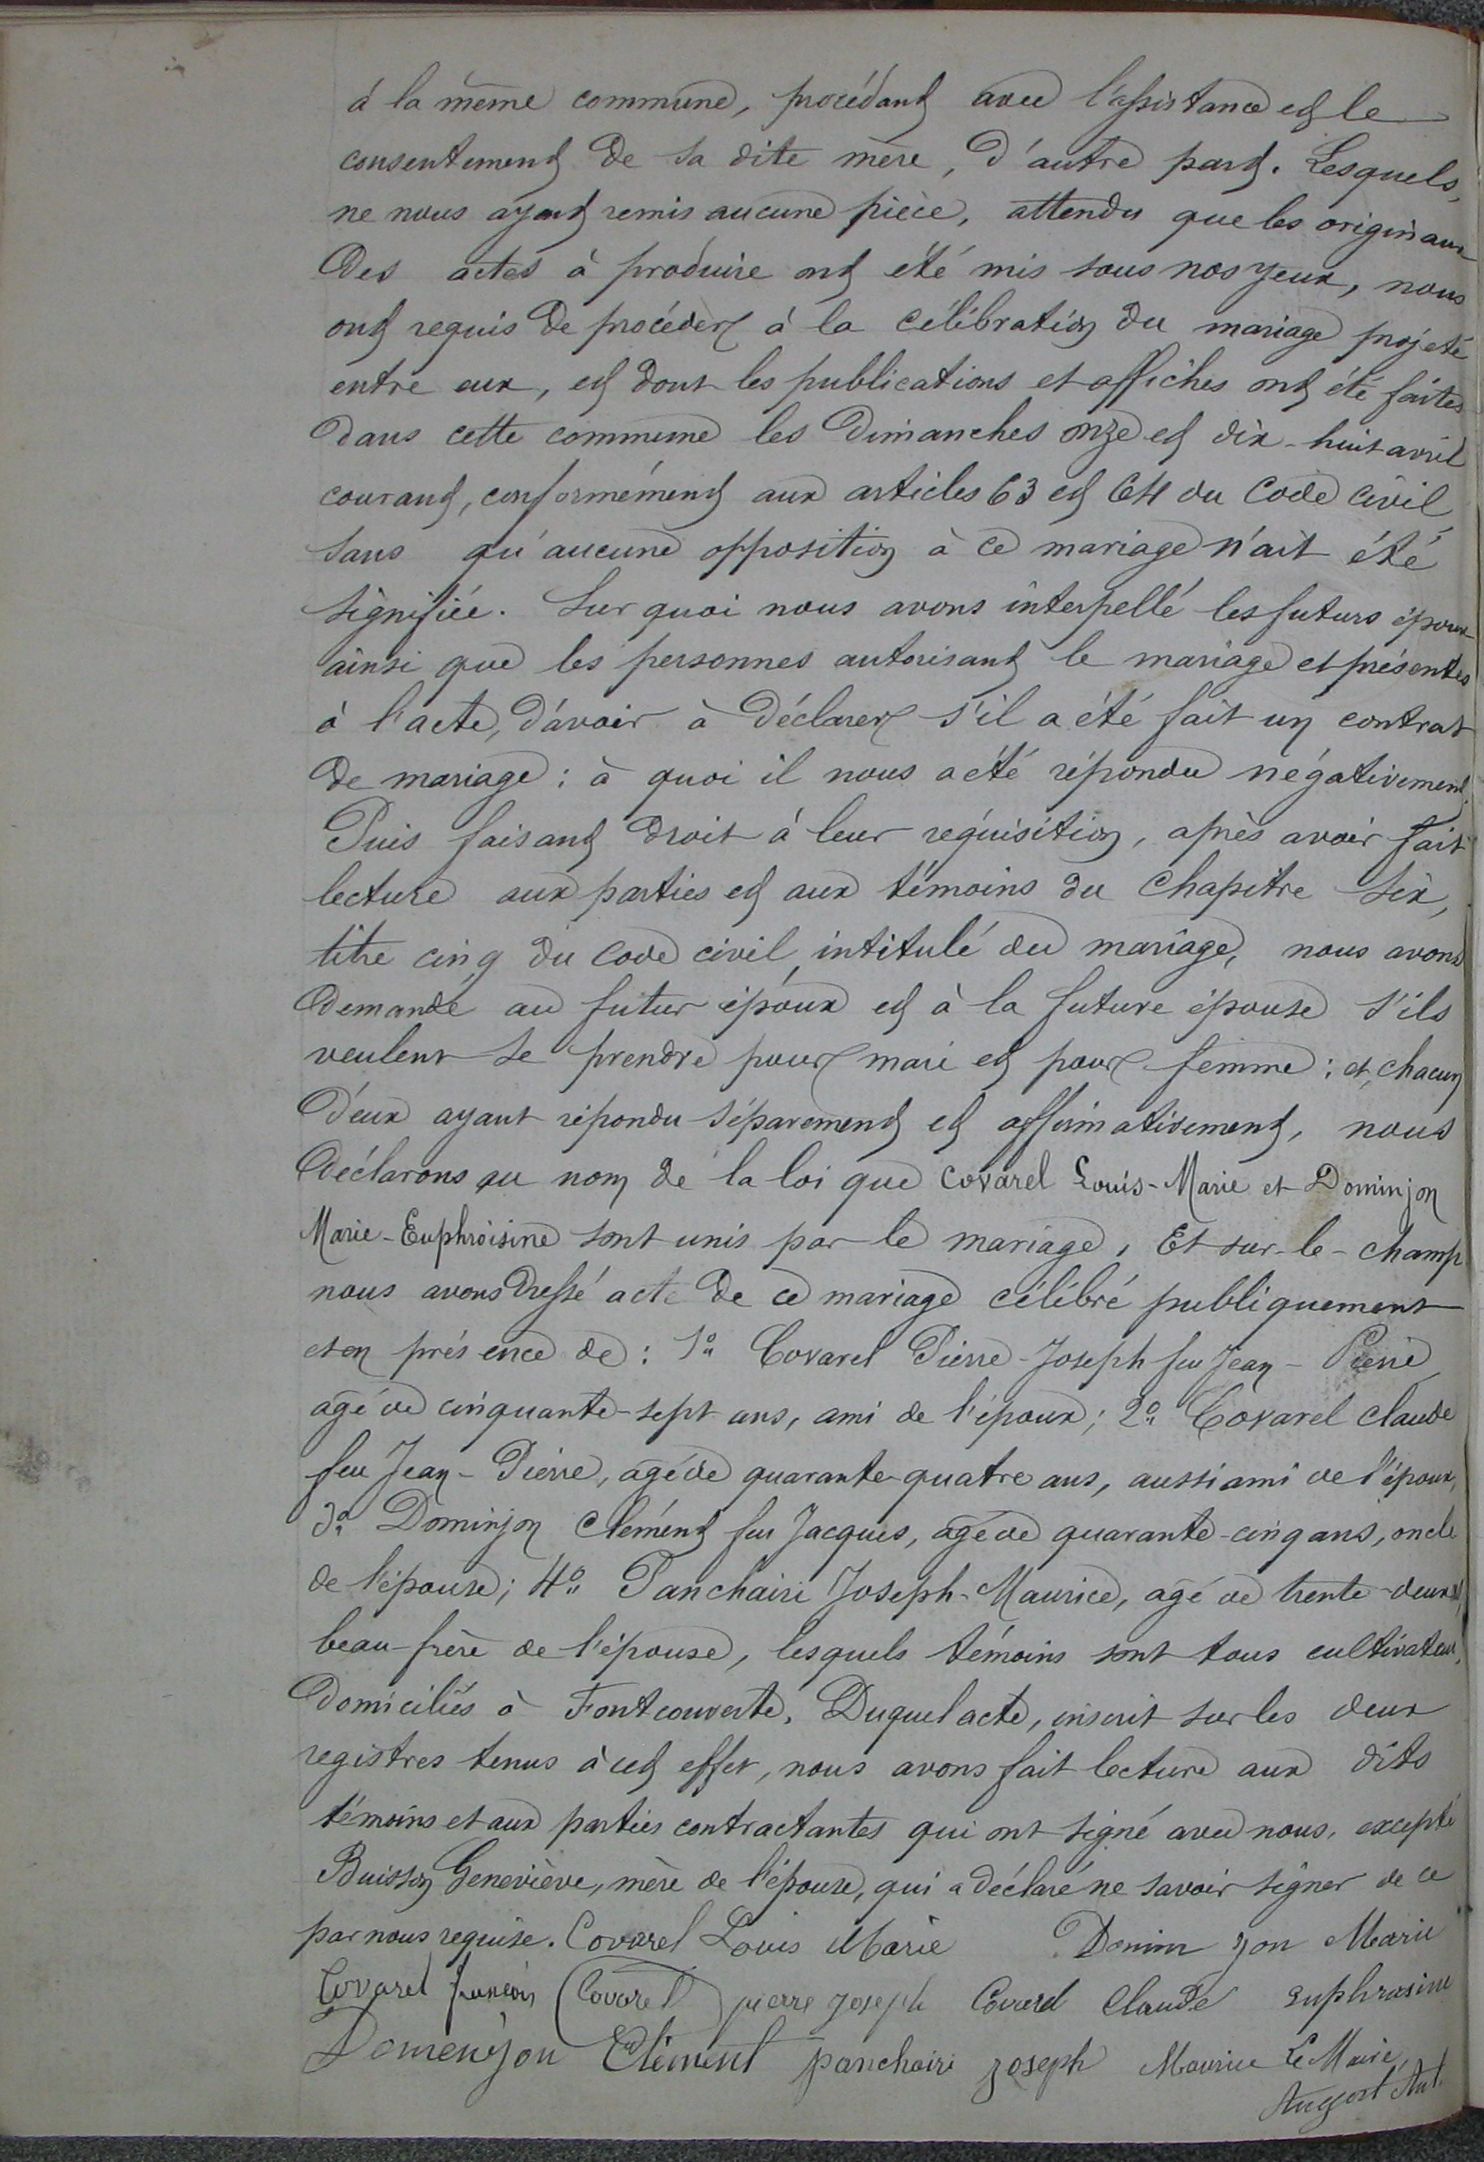 à la même commune, procédant avec l'assistance et le
consentement de sa dite mère, d'autre part. Lesquels,
ne nous ayant remis aucune pièce, attendu que les originaux
des actes à produire ont été mis sous nos yeux, nous
ont requis de procéder à la célébration du mariage projeté
entre eux, et dont les publications et affiches ont été faites
dans cette commune les dimanches onze et dix-huit avril
courant, conformément aux articles 63 et 64 du code civil,
sans qu'aucune opposition à ce mariage n'ait été
signifiée. Sur quoi nous avons interpellé les futurs époux
ainsi que les personnes autorisant le mariage et présentes
à l'acte, d'avoir à déclarer s'il a été fait un contrat
de mariage : à quoi il nous a été répondu négativement.
Puis faisant droit à leur réquisition, après avoir fait
lecture aux parties et aux témoins du chapitre six,
titre cinq du code civil, intitulé du mariage, nous avons
demandé au futur époux et à la future épouse s'ils
veulent se prendre pour mari et pour femme : et chacun
d'eux ayant répondu séparement et affirmativement, nous
déclarons au nom de la loi que Covarel Louis-Marie et Dominjon
Marie-Euphroisine sont unis par le mariage, Et sur-le-champ
nous avons dressé acte de ce mariage célébré publiquement
et en présence de : 1° Covarel Pierre-Joseph feu Jean-Pierre
agé de cinquante-sept ans, ami de l'époux ; 2° Covarel Claude
feu Jean-Pierre, agé de quarante-quatre ans, aussi ami de l'époux,
3° Dominjon Clément feu Jacques, agé de quarante-cinq ans, oncle
de l'épouse ; 4° Panchairi Joseph-Maurice, agé de trente-deux
beau-frère de l'épouse, lesquels témoins sont tous cultivateurs,
domiciliés à Fontcouverte. Duquel acte, inscrit sur les deux
registres tenus à cet effet, nous avons fait lecture aux dits
témoins et aux parties contractantes qui ont signé avec nous, excepté
Buisson Geneviève, mère de l'épouse, qui a déclaré ne savoir signer de ce
par nous requise. Covarel Louis Marie Domin jon Marie
Covarel françois Covarel pierre joseph Covarel Claude euphrasine
Domenjon Clément panchairi joseph Maurice Le Maire,